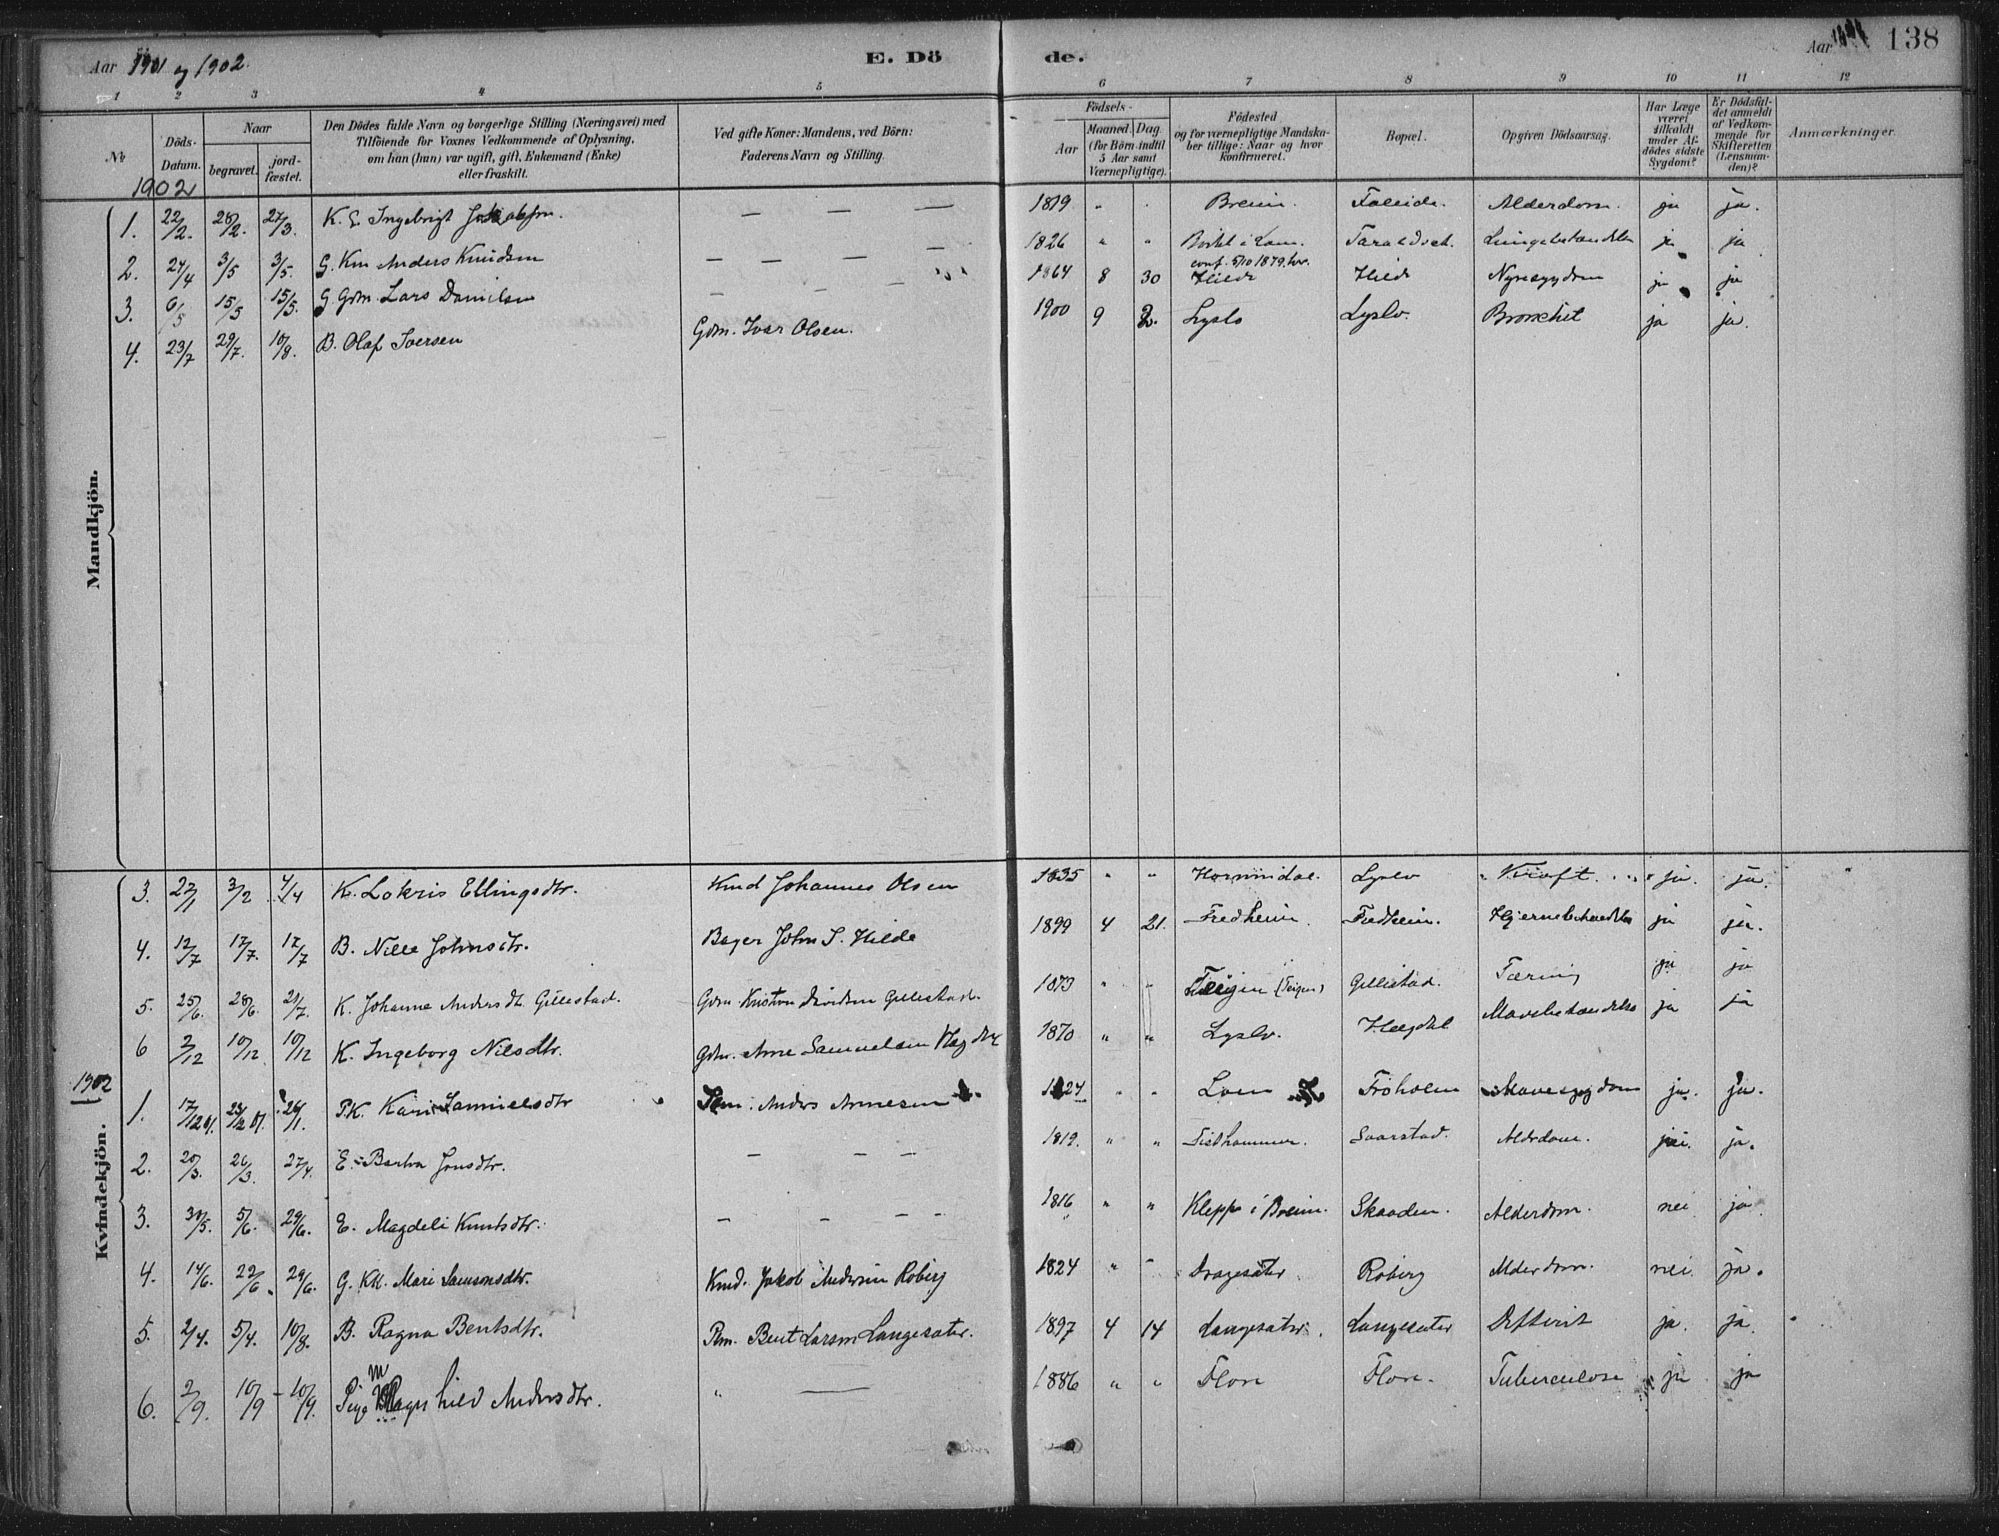 Aar 1901 og 1902.
E. Dö
de.
Aar
138
1 2 3 4 5 6 7 8 9 10 11 12
No
Döds-Datum.
Naar
begravet.
jord-fæstet.
Den Dödes fulde Navn og borgerlige Stilling (Næringsvei) med
Tilföiende for Voxnes Vedkommende af Oplysning,
om han (hun) var ugift, gift, Enkemand (Enke)
eller fraskilt.
Ved gifte Koner: Mandens, ved Börn:
Faderens Navn og Stilling.
Födsels-
Aar
Maaned. Dag.
(for Börn indtil
5 Aar samt
Værnepligtige).
Födested
og for værnepligtige Mandska-
ber tillige: Naar og hvor
konfirmeret.
Bopæl.
Opgiven Dödsaarsag.
Har Læge
været
tilkaldt
under Af-
dödes sidste
Sygdom?
Er Dödsfal-
det anmeldt
af Vedkom-
mende for
Skifteretten
(Lensman-
den)?
Anmærkninger.
1902
Mandkjön.
1. 22/2. 28/2. 27/3. K. E. Ingebrigt — — — — 1819 " . Breim. Faleide. Alderdom. ja ja.
2. 24/4 3/5 3/5. G. Km Anders Knudsen — — — — 1826 " " i Lom. ja ja
3. 6/5 15/5 15/5. G. Gdm. Lars Danielsen 1864 8 30 conf. 5/10 1879. Hilde Hilde Nyresygdom ja ja
4. 23/7 29/7. 10/8. B. Olaf Iversen Gdm. Ivar Olsen. 1900 9 2. Lyslo Lyslo. Bronchit ja ja.
Kvindekjön.
3. 27/1 3/2 4/4 K. Lokris Ellingsdtr. Kmd Johannes Olsen 1835 " " Hornindal. Lyslo Kræft ja. ja.
4. 12/7 17/7. 17/7 B. Nille Johnsdtr. Bager John S. Hilde 1899 4 21. Fredheim Fredheim. ja ja.
5. 25/6. 28/6. 21/7. K. Johanne Andersdt. Gillestad. Gdm. Gillestad. 1873 " " (Teigen) Gillestad. Tæring ja ja
6 2/12 10/12 10/12 K. Ingeborg Nilsdtr. Gdm. Arne Samuelsen 1870 " " Lyslo. ja ja
1902
1. 17/12 01. 23/12 01. 26/1. Kari Anders Arnesen 1824 " " Loen Fröholm Mavesygdom ja. ja.
2. 20/3. 26/3 27/4 E. Jonsdtr. — — 1812. " " Alderdom. ja.
3. 30/5. 5/6. 29/6. E. Magdeli Knutsdtr. — — — — 1816 " " Kleppe i Breim. Skaaden. Alderdom. nei ja
4. 14/6. 22/6. 29/6. G. KK. Mari Samsonsdtr. Kmd. Jakob Andersen Roberg 1824 " " Dragesater Roberg Alderdom. nei ja.
5. 2/4. 5/4. 10/8. B. Ragna Bentsdtr. Pm. Bent Larsen Langesater. 1897 4 14 Langesater. Langesater Difterit ja. ja
6. 2/9. 10/9 10/9. Pige Ragnhild Andersdtr. " — 1886 " " Flore Flore. Tuberculose ja ja